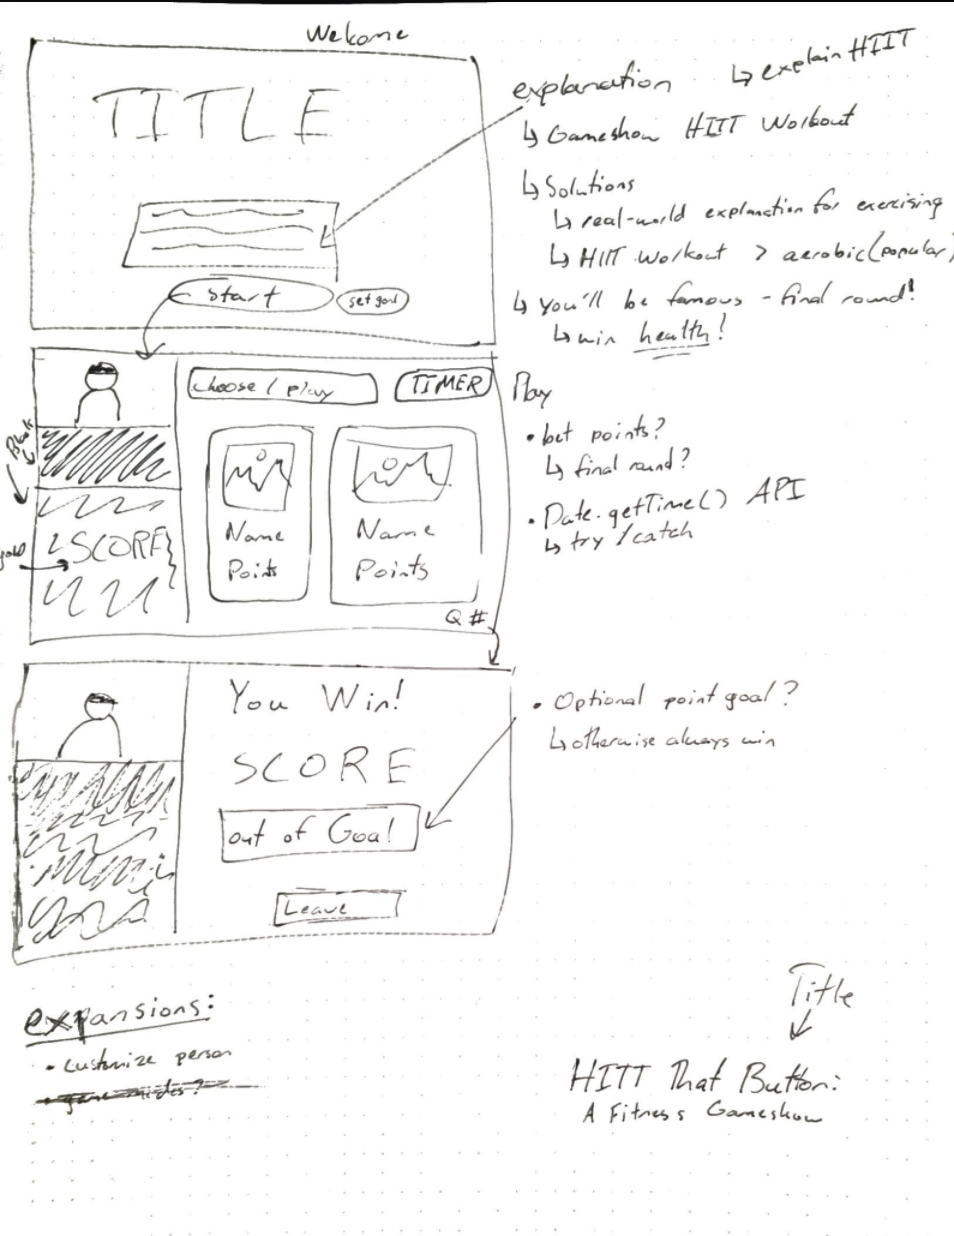 Welcome
TITLE
start
set goal
explanation
↳ explain HIIT
↳ Gameshow HIIT Workout
↳ Solutions
↳ real-world explanation for exercising
↳ HIIT Workout > aerobic (popular)
↳ you'll be famous - final round!
↳ win health!
choose / play
TIMER
SCORE
Name
Points
Name
Points
Q #
Play
• bet points?
↳ final round?
• Date.getTime() API
↳ try / catch
You Win!
SCORE
out of Goal
Leave
• Optional point goal?
↳ otherwise always win
expansions:
• customize person
• game modes?
Title
HITT That Button:
A Fitness Gameshow